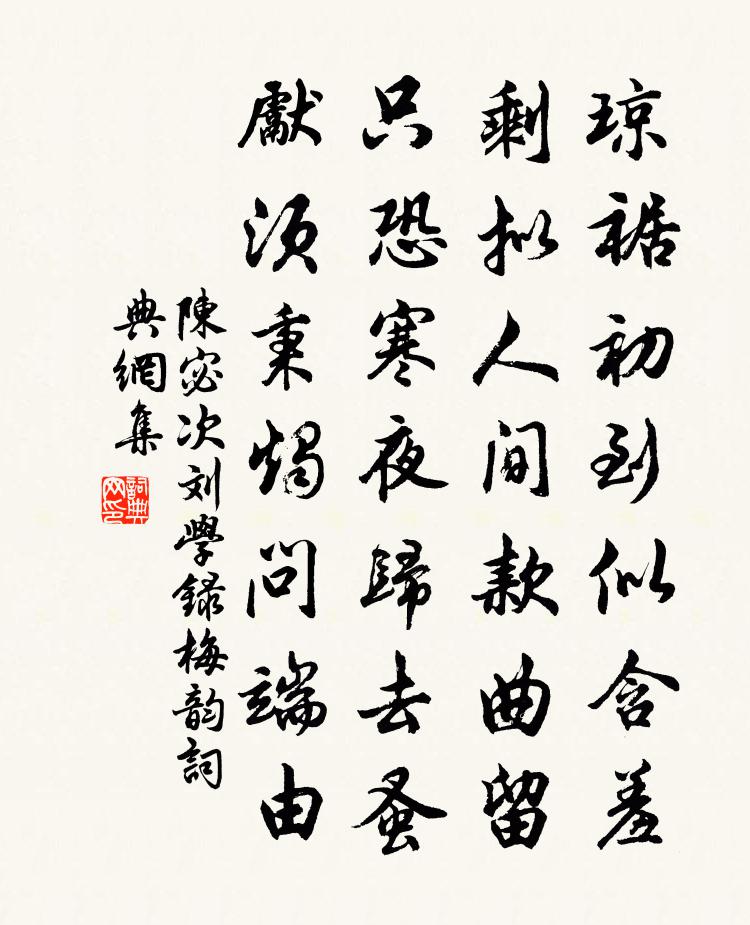 琼裾初到似含羞
剩拟人间款曲留
只恐寒夜归去蚤
献须秉烛问端由
陳宓次刘學録梅韵詞
典網集
詞典网印